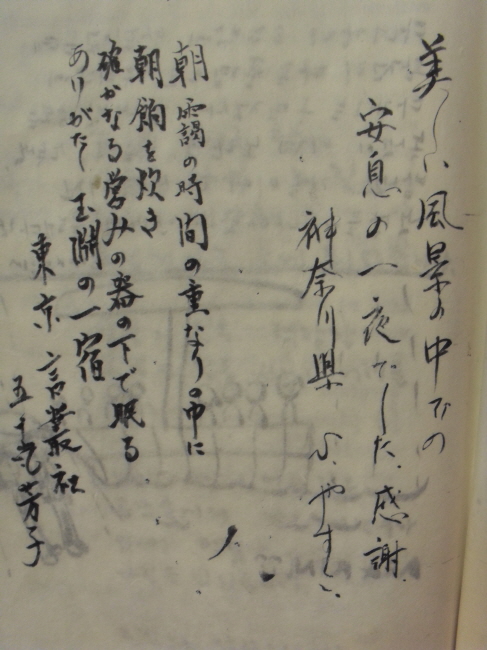 美しい風景の中での
安息の一夜でした。感謝。
神奈川県 やすい
朝靄の時間の重なりの中に
朝餉を炊き
確かなる営みの器の下で眠る
ありがたし 玉淵の一宿
東京 言叢社
五十嵐芳子